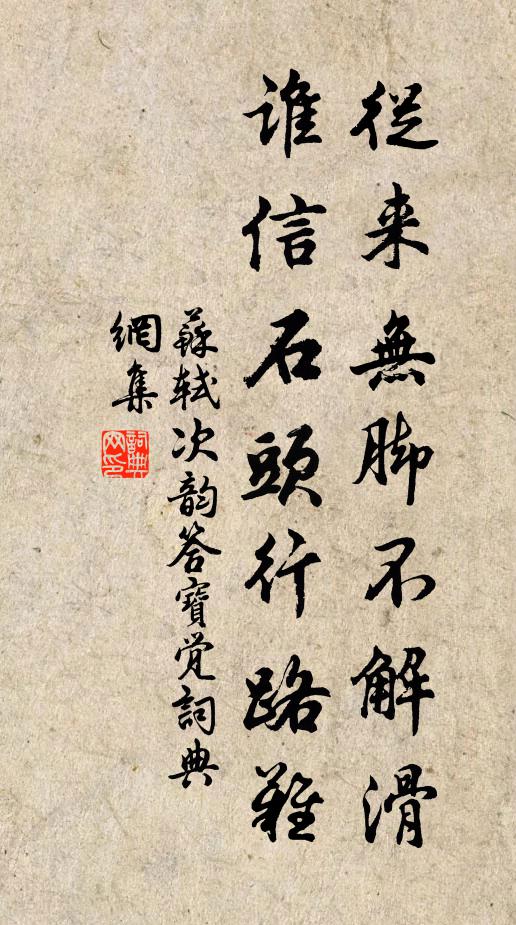 從来無脚不解滑
誰信石頭行路難
蘇軾次韵答寶覚詞典
網集
詞典
网印